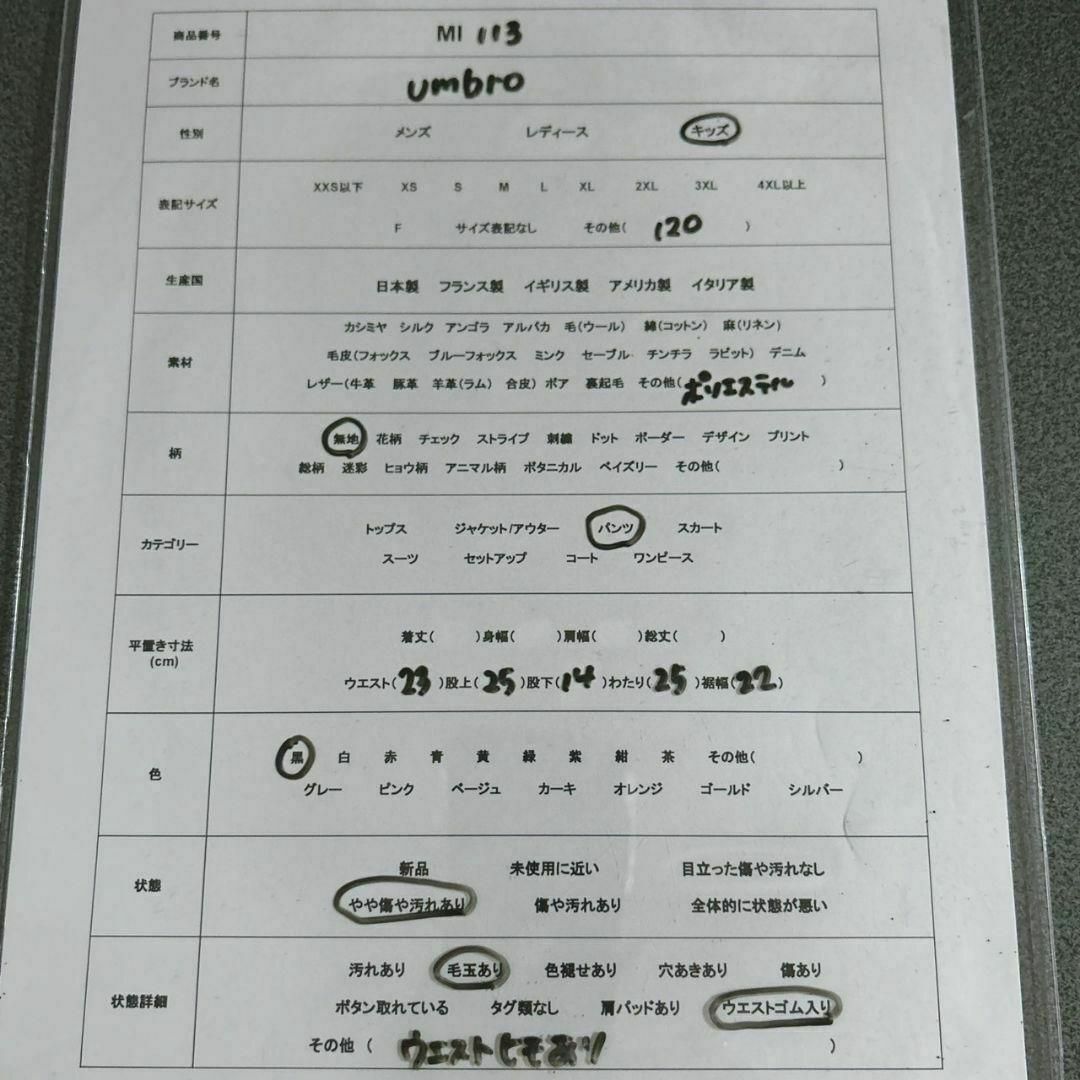 商品番号 MI 113
ブランド名 umbro
性別 メンズ レディース キッズ
表記サイズ
XXS以下 XS S M L XL 2XL 3XL 4XL以上
F サイズ表記なし その他( 120 )
生産国 日本製 フランス製 イギリス製 アメリカ製 イタリア製
素材
カシミヤ シルク アンゴラ アルパカ 毛(ウール) 綿(コットン) 麻(リネン)
毛皮(フォックス ブルーフォックス ミンク セーブル チンチラ ラビット) デニム
レザー(牛革 豚革 羊革(ラム) 合皮) ボア 裏起毛 その他( ポリエステル )
柄
無地 花柄 チェック ストライプ 刺繍 ドット ボーダー デザイン プリント
総柄 迷彩 ヒョウ柄 アニマル柄 ボタニカル ペイズリー その他( )
カテゴリー
トップス ジャケット/アウター パンツ スカート
スーツ セットアップ コート ワンピース
平置き寸法
(cm)
着丈( )身幅( )肩幅( )総丈( )
ウエスト( 23 )股上( 25 )股下( 14 )わたり( 25 )裾幅( 22 )
色
黒 白 赤 青 黄 緑 紫 紺 茶 その他( )
グレー ピンク ベージュ カーキ オレンジ ゴールド シルバー
状態
新品 未使用に近い 目立った傷や汚れなし
やや傷や汚れあり 傷や汚れあり 全体的に状態が悪い
状態詳細
汚れあり 毛玉あり 色褪せあり 穴あきあり 傷あり
ボタン取れている タグ類なし 肩パッドあり ウエストゴム入り
その他 ( ウエストヒモあり )